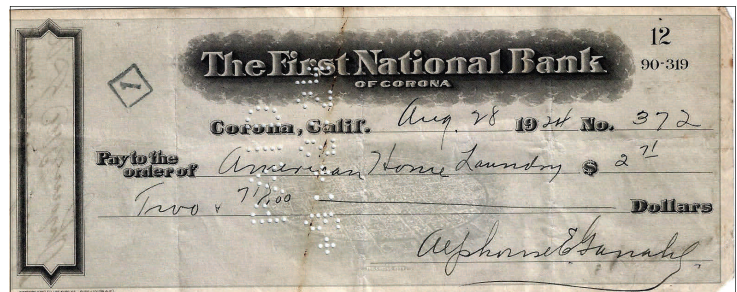 12
The First National Bank
90-319
OF CORONA
1
Corona, Calif. Aug. 28 1924 No. 372
Pay to the order of American Home Laundry $ 2 71
Two & 71/100 Dollars
Alphonse E Ganahl